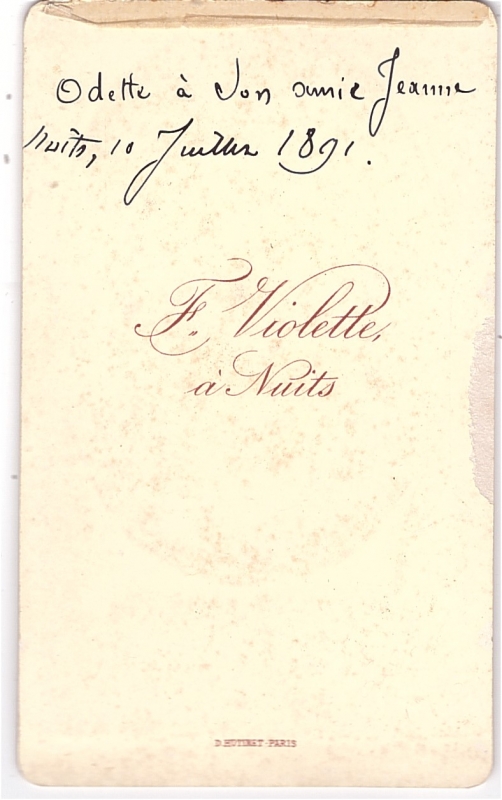 Odette à son amie Jeanne
Nuits, 10 Juillet 1891.
F. Violette,
à Nuits
D. HUTINET-PARIS